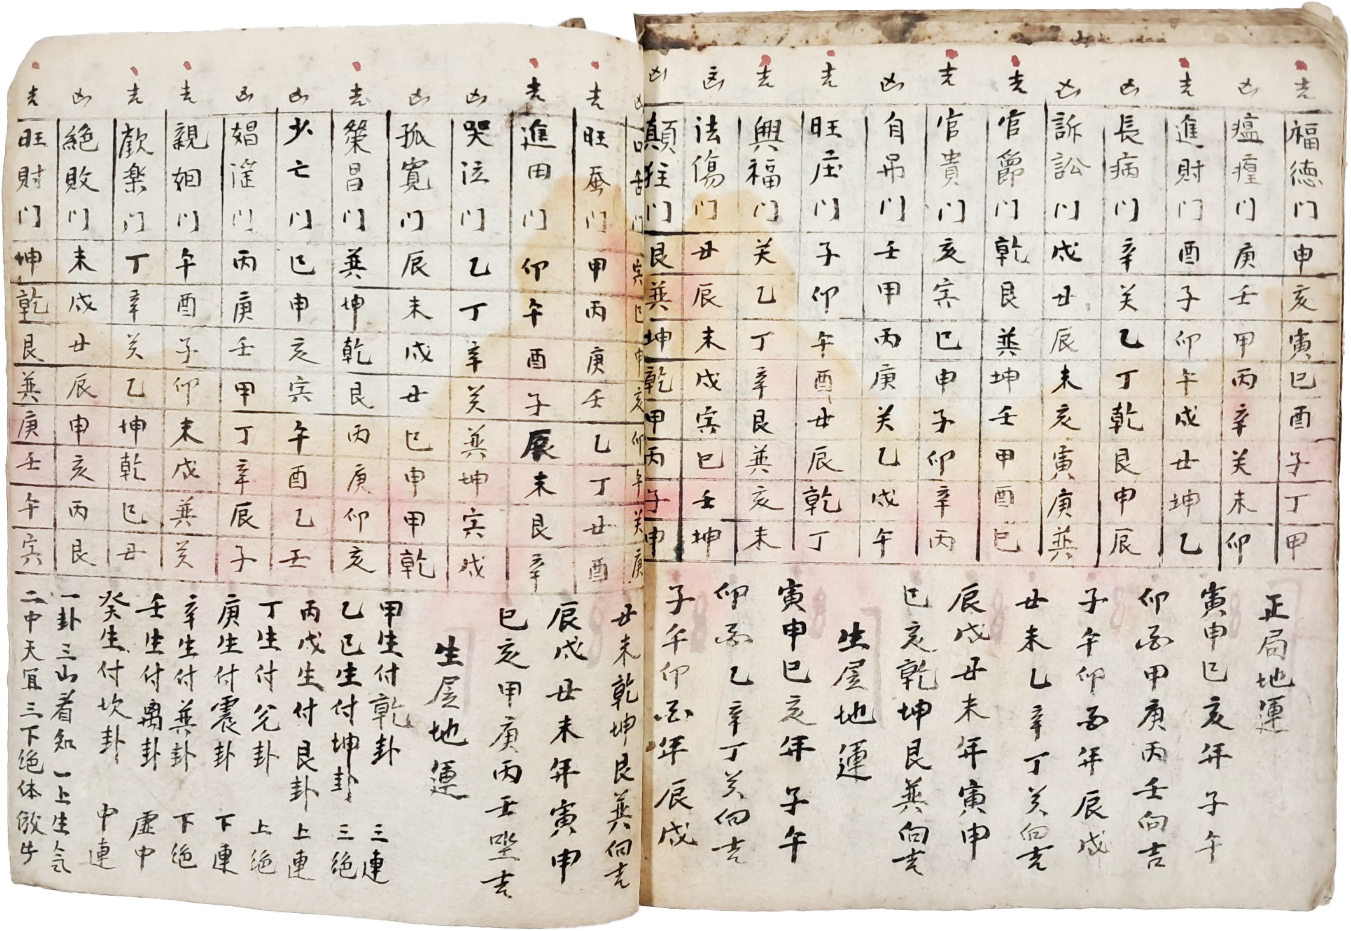 吉 福德门 申 亥 寅 巳 酉 子 丁 甲
凶 瘟瘴门 庚 壬 甲 丙 辛 癸 未 卯
吉 進財门 酉 子 卯 午 戌 丑 坤 乙
凶 長病门 辛 癸 乙 丁 乾 艮 申 辰
凶 訴訟门 戌 丑 辰 未 亥 寅 庚 巽
吉 官爵门 乾 艮 巽 坤 壬 甲 酉 巳
吉 官貴门 亥 寅 巳 申 子 卯 辛 丙
凶 自吊门 壬 甲 丙 庚 癸 乙 戌 午
吉 旺庄门 子 卯 午 酉 丑 辰 乾 丁
吉 興福门 癸 乙 丁 辛 艮 巽 亥 未
凶 法傷门 丑 辰 未 戌 寅 巳 壬 坤
凶 顛狂门 艮 巽 坤 乾 甲 丙 子 申
正局地運
寅申巳亥年子午
卯酉甲庚丙壬向吉
子午卯酉年辰戌
丑未乙辛丁癸向吉
辰戌丑未年寅申
巳亥乾坤艮巽向吉
生屋地運
寅申巳亥年子午
卯酉乙辛丁癸向吉
子午卯酉年辰戌
凶 口舌门 寅 巳 申 亥 卯 午 癸 庚
吉 旺蚕门 甲 丙 庚 壬 乙 丁 丑 酉
吉 進田门 卯 午 酉 子 辰 未 艮 辛
凶 哭泣门 乙 丁 辛 癸 巽 坤 寅 戌
凶 孤寬门 辰 未 戌 丑 巳 申 甲 乾
吉 榮昌门 巽 坤 乾 艮 丙 庚 卯 亥
凶 少亡门 巳 申 亥 寅 午 酉 乙 壬
凶 娼淫门 丙 庚 壬 甲 丁 辛 辰 子
吉 親姻门 午 酉 子 卯 未 戌 巽 癸
吉 歡楽门 丁 辛 癸 乙 坤 乾 巳 丑
凶 絕敗门 未 戌 丑 辰 申 亥 丙 艮
吉 旺財门 坤 乾 艮 巽 庚 壬 午 寅
丑未乾坤艮巽向吉
辰戌丑未年寅申
巳亥甲庚丙壬坐吉
生屋地運
甲生付乾卦 三連
乙巳生付坤卦 三绝
丙戊生付艮卦 上連
丁生付兑卦 上绝
庚生付震卦 下連
辛生付巽卦 下绝
壬生付离卦 虚中
癸生付坎卦 中連
一卦三山着知一上生气
二中天宜三下绝体